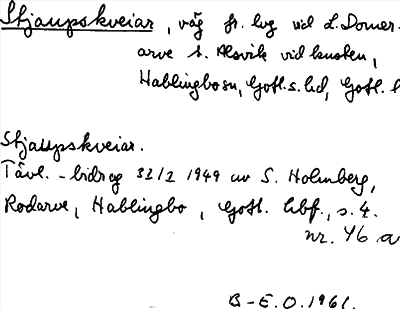 Stjaupskveiar, väg fr. lvg vid L. Domer-
arve t. Alsvik vid kusten,
Hablingbo sn, Gotl. s. hd, Gotl. l
Stjaupskveiar.
Tävl.-bidrag 31/1 1949 av S. Holmberg,
Rodarve, Hablingbo, Gotl. hbf., s. 4.
nr. 46 a
B-E.O. 1961.